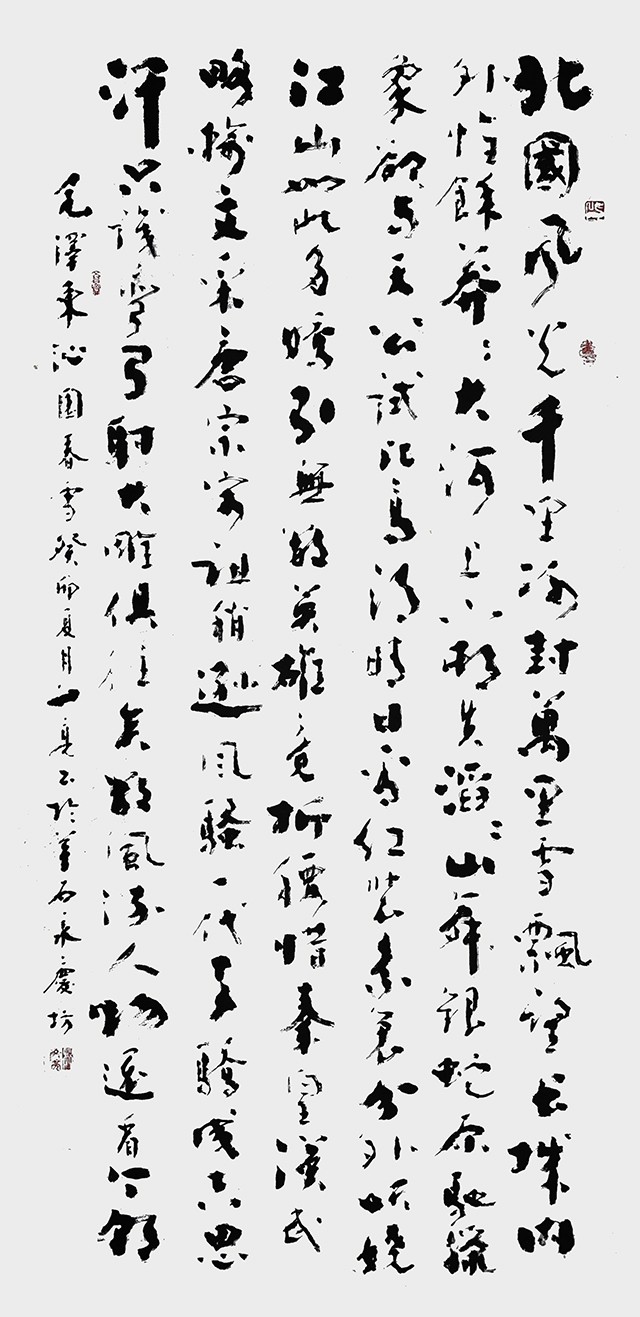 北國風光千里冰封萬里雪飄望長城内
外惟餘莽〻大河上下頓失滔〻山舞銀蛇原馳蠟
象欲與天公試比高須晴日看紅裝素裹分外妖嬈
江山如此多嬌引無數英雄竞折腰惜秦皇漢武
略輸文采唐宗宋祖稍遜風騷一代天驕成吉思
汗只識彎弓射大雕俱往矣數風流人物還看今朝
毛澤東沁園春雪癸卯夏月書於羊石永慶坊